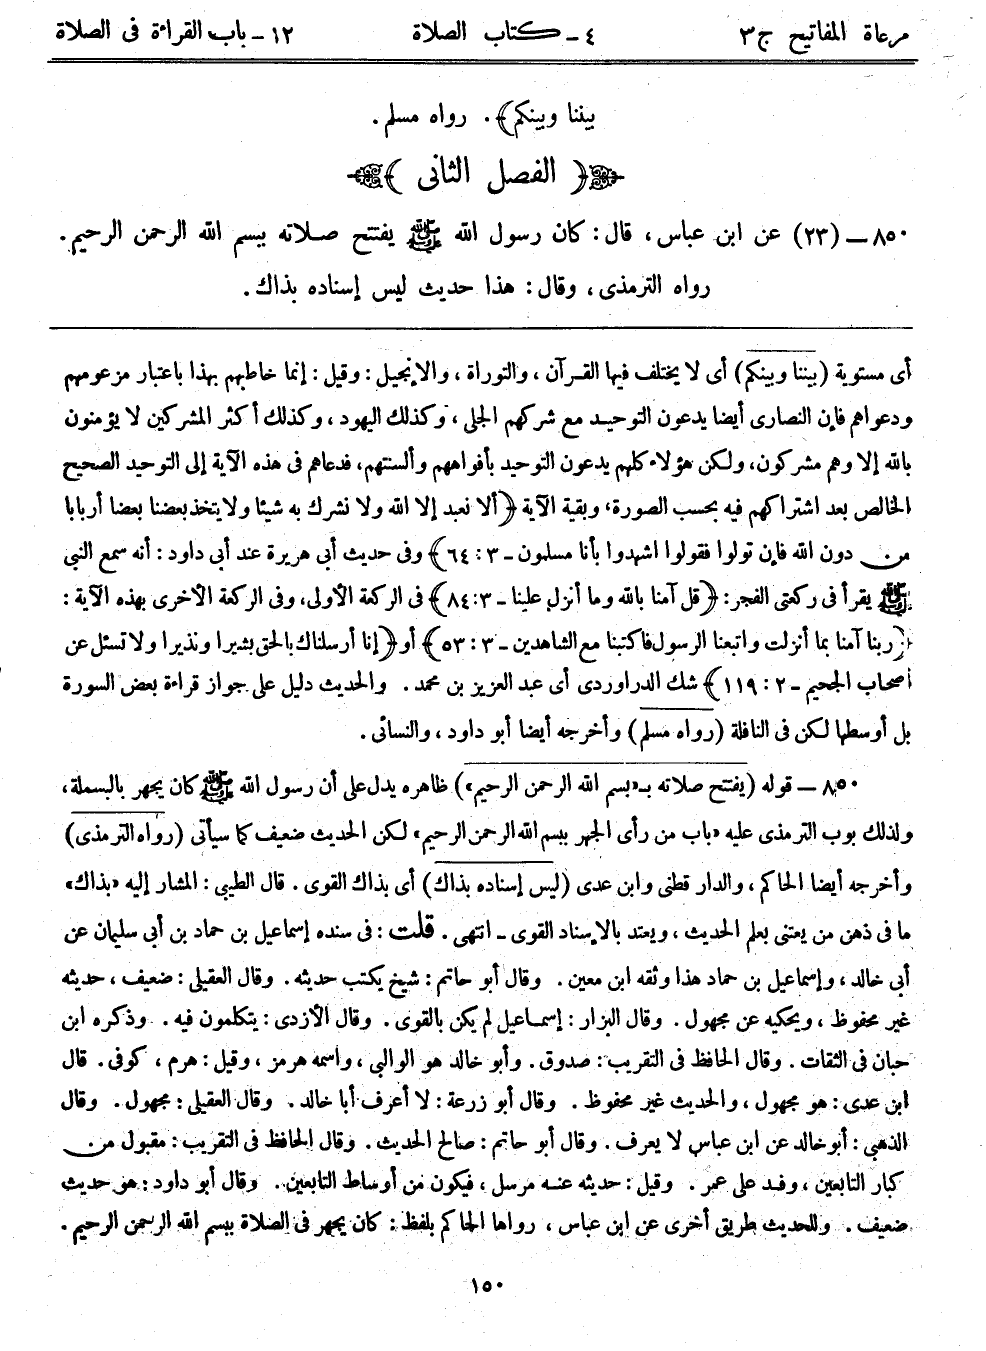 مرعاة المفاتيح ج٣ ٤ – كتاب الصلاة ١٢ – باب القراءة فى الصلاة
بيننا وبينكم﴾. رواه مسلم.
﴿ الفصل الثانى ﴾
٨٥٠ – (٢٣) عن ابن عباس، قال: كان رسول الله ﷺ يفتتح صلاته ببسم الله الرحمن الرحيم.
رواه الترمذى، وقال: هذا حديث ليس إسناده بذاك.
أى مستوية (بيننا وبينكم) أى لا يختلف فيها القرآن، والتوراة، والإنجيل: وقيل: إنما خاطبهم بهذا باعتبار مزعومهم
ودعواهم فإن النصارى أيضا يدعون التوحيد مع شركهم الجلى، وكذلك اليهود، وكذلك أكثر المشركين لا يؤمنون
بالله إلا وهم مشركون، ولكن هؤلاء كلهم يدعون التوحيد بأفواههم وألسنتهم، فدعاهم فى هذه الآية إلى التوحيد الصحيح
الخالص بعد اشتراكهم فيه بحسب الصورة، وبقية الآية ﴿ألا نعبد إلا الله ولا نشرك به شيئا ولا يتخذ بعضنا بعضا أربابا
من دون الله فإن تولوا فقولوا اشهدوا بأنا مسلمون – ٣ : ٦٤﴾ وفى حديث أبى هريرة عند أبى داود: أنه سمع النبى
ﷺ يقرأ فى ركعتى الفجر: ﴿قل آمنا بالله وما أنزل علينا – ٣: ٨٤﴾ فى الركعة الأولى، وفى الركعة الأخرى بهذه الآية:
﴿ربنا آمنا بما أنزلت واتبعنا الرسول فاكتبنا مع الشاهدين – ٣ : ٥٣﴾ أو ﴿إنا أرسلناك بالحق بشيرا ونذيرا ولا تسئل عن
أصحاب الجحيم – ٢ : ١١٩﴾ شك الدراوردى أى عبد العزيز بن محمد. والحديث دليل على جواز قراءة بعض السورة
بل أوسطها لكن فى النافلة (رواه مسلم) وأخرجه أيضا أبو داود، والنسائى.
٨٥٠ – قوله (يفتتح صلاته بـ«بسم الله الرحمن الرحيم») ظاهره يدل على أن رسول الله ﷺ كان يجهر بالبسملة،
ولذلك بوب الترمذى عليه «باب من رأى الجهر ببسم الله الرحمن الرحيم» لكن الحديث ضعيف كما سيأتى (رواه الترمذى)
وأخرجه أيضا الحاكم، والدار قطنى وابن عدى (ليس إسناده بذاك) أى بذاك القوى. قال الطيبى: المشار إليه «بذاك»
ما فى ذهن من يعتنى بعلم الحديث، ويعتد بالإسناد القوى – انتهى. قلت: فى سنده إسماعيل بن حماد بن أبى سليمان عن
أبى خالد، وإسماعيل بن حماد هذا وثقه ابن معين. وقال أبو حاتم: شيخ يكتب حديثه. وقال العقيلى: ضعيف، حديثه
غير محفوظ، ويحكيه عن مجهول. وقال البزار: إسماعيل لم يكن بالقوى. وقال الأزدى: يتكلمون فيه. وذكره ابن
حبان فى الثقات. وقال الحافظ فى التقريب: صدوق. وأبو خالد هو الوالبى، واسمه هرمز، وقيل: هرم، كوفى. قال
ابن عدى: هو مجهول، والحديث غير محفوظ. وقال أبو زرعة: لا أعرف أبا خالد. وقال العقيلى: مجهول. وقال
الذهبى: أبو خالد عن ابن عباس لا يعرف. وقال أبو حاتم: صالح الحديث. وقال الحافظ فى التقريب: مقبول من
كبار التابعين، وفد على عمر. وقيل: حديثه عنه مرسل، فيكون من أوساط التابعين. وقال أبو داود: هو حديث
ضعيف. وللحديث طريق أخرى عن ابن عباس، رواها الحاكم بلفظ: كان يجهر فى الصلاة ببسم الله الرحمن الرحيم.
١٥٠